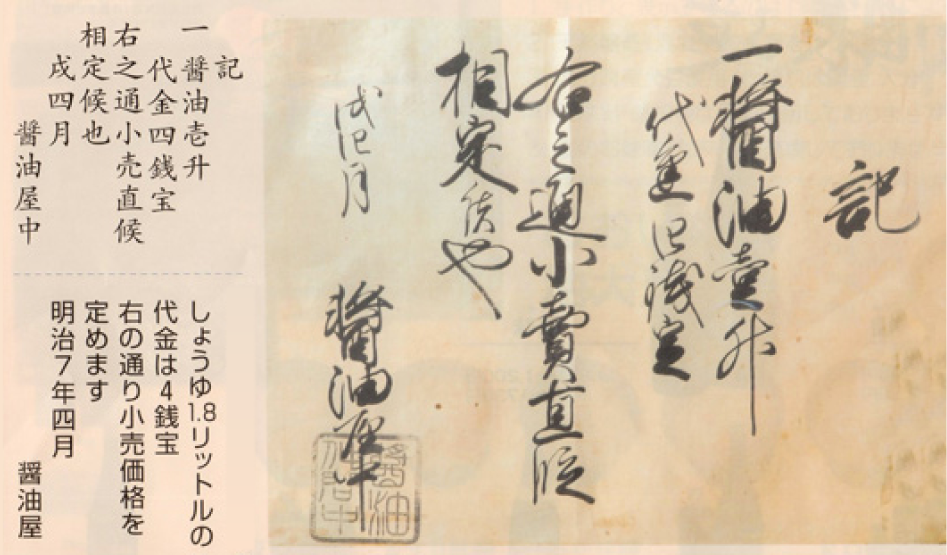 記
一醤油壱升
代金四銭宝
右之通小賣直段
相定候也
戌四月
醤油屋中
記
一醤油壱升
代金四銭宝
右之通小売直候
相定候也
戌四月
醤油屋中
しょうゆ1.8リットルの
代金は4銭宝
右の通り小売価格を
定めます
明治7年四月
醤油屋